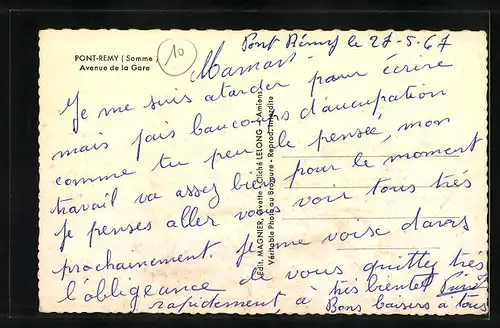 PONT-REMY (Somme)
Avenue de la Gare
10
Pont Rémy le 27-5-67
Maman
Je me suis atarder pour écrire
mais fais baucoup d'aucupation
comme tu peu le pensée, mon
travail va assez bien pour le moment
Je penses aller vous voir tous très
prochainement. Je me voise dans
l'obligeance de vous quitter très
rapidement, à très bientot
Bons baisers à tous
Edit. MAGNIER, Civette - Cliché LELONG - Amiens
Véritable Photo au Bromure - Reprod. Interdite